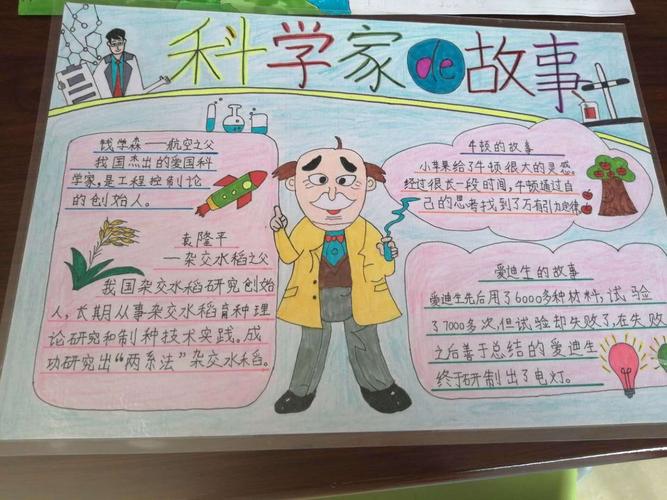 科学家de故事
钱学森——航空之父
我国杰出的爱国科
学家,是工程控制论
的创始人。
袁隆平
——杂交水稻之父
我国杂交水稻研究创始
人,长期从事杂交水稻育种理
论研究和制种技术实践。成
功研究出“两系法”杂交水稻。
牛顿的故事
小苹果给了牛顿很大的灵感
经过很长一段时间,牛顿通过自
己的思考找到了万有引力定律
爱迪生的故事
爱迪生先后用了6000多种材料,试验
了7000多次,但试验却失败了,在失败
之后善于总结的爱迪生
终于研制出了电灯。